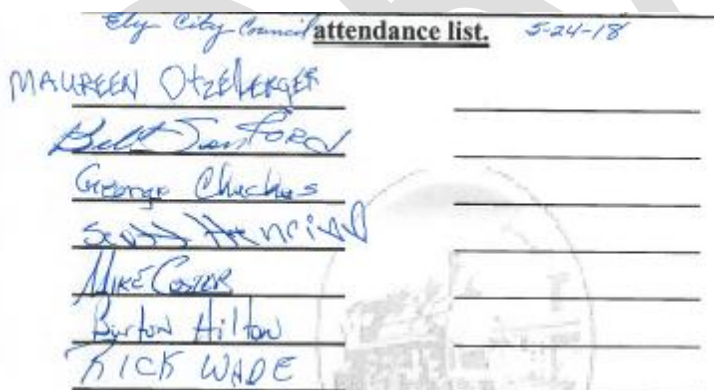 Ely City Council attendance list. 5-24-18
MAUREEN OtzelbERGER
Bill SanFORD
George Chachas
Scott Henriod
MIKE COSTER
Burton Hilton
RICK WADE